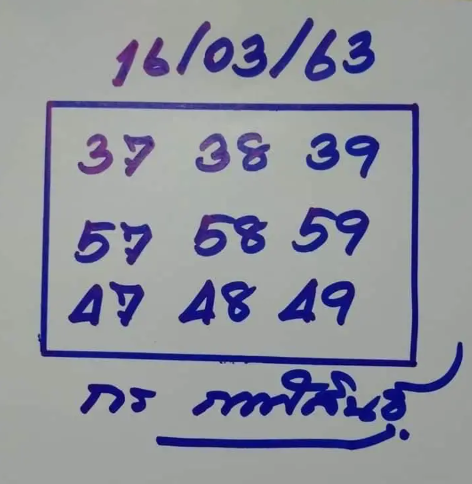 16/03/63
37 38 39
57 58 59
47 48 49
กร กาฬสินธุ์